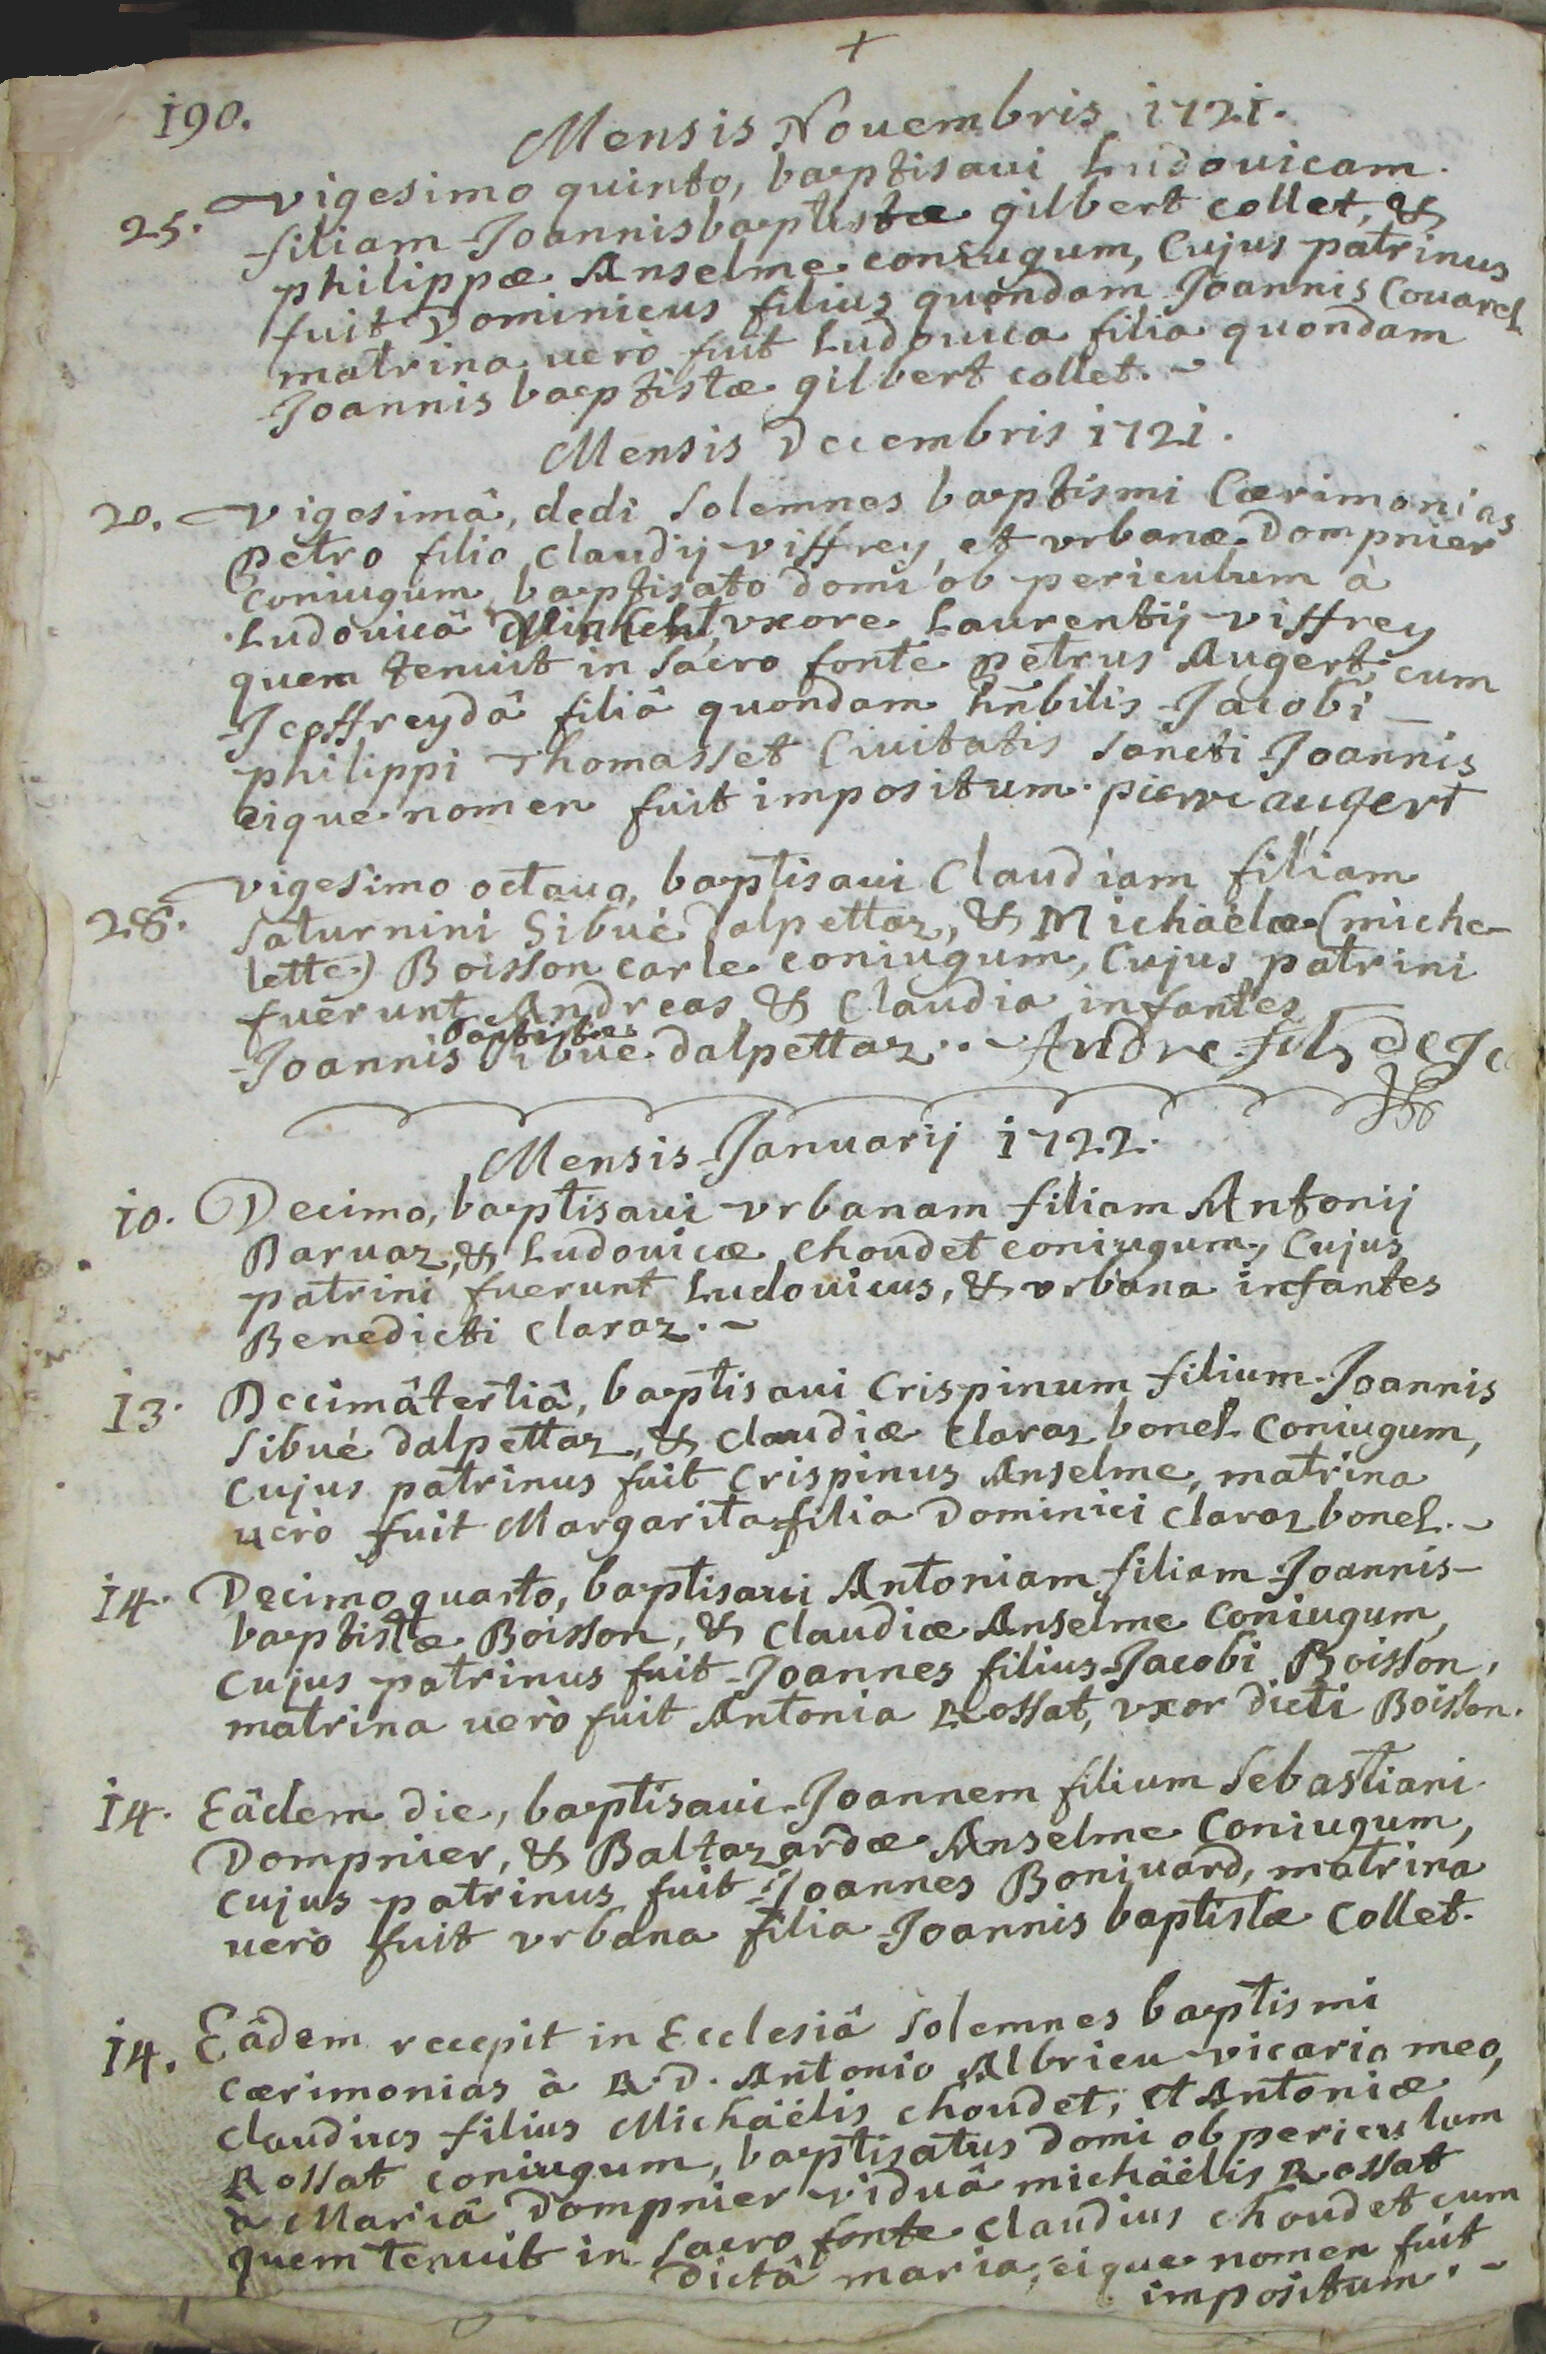 +
190.
Mensis Nouembris 1721.
25. vigesimo quinto, baptisaui Ludouicam
filiam Joannisbaptistæ gilbert collet, &
philippæ Anselme coniugum, Cujus patrinus
fuit Dominicus filius quondam Joannis Couarel
matrina uerò fuit Ludouica filia quondam
Joannis baptistæ gilbert collet.
Mensis Decembris 1721.
20. vigesimâ, dedi solemnes baptismi Cærimonias
petro filio claudij viffrey, et vrbanæ Dompnier
Coniugum, baptisato domi ob periculum à
Ludouicâ vxore Laurentij viffrey
quem tenuit in sacro fonte petrus Augert cum
Jeoffreydâ filiâ quondam hñbilis Jacobi
philippi Thomasset Ciuitatis sancti Joannis
eique nomen fuit impositum. pierre augert
28. vigesimo octauo, baptisaui Claudiam filiam
saturnini Sibué dalpettaz, & Michaëlæ (miche-
lette) Boisson carle coniugum, Cujus patrini
fuerunt Andreas & Claudia infantes
baptistæ
Joannis Sibué dalpettaz. Andre fils de Je
Mensis Januarij 1722.
10. Decimo, baptisaui vrbanam filiam Antonij
Baruaz, & Ludouicæ choudet coniugum, Cujus
patrini fuerunt Ludouicus, & vrbana infantes
Benedicti claraz.
13. Decimâtertiâ, baptisaui Crispinum filium Joannis
Sibué dalpettaz, & claudiæ claraz bonel Coniugum,
Cujus patrinus fuit Crispinus Anselme, matrina
uerò fuit Margarita filia Dominici claraz bonel.
14. Decimo quarto, baptisaui Antoniam filiam Joannis-
baptistæ Boisson, & Claudiæ Anselme Coniugum,
Cujus patrinus fuit Joannes filius Jacobi Boisson,
matrina uerò fuit Antonia Rossat, vxor dicti Boisson.
14. Eâdem die, baptisaui Joannem filium Sebastiani
Dompnier, & Baltazardæ Anselme Coniugum,
Cujus patrinus fuit Joannes Boniuard, matrina
uerò fuit vrbana filia Joannis baptistæ Collet.
14. Eâdem recepit in Ecclesiâ solemnes baptismi
Cærimonias à R.D. Antonio Albrieu vicario meo,
Claudius filius Michaëlis choudet, et Antoniæ
Rossat coniugum, baptisatus domi ob periculum
à Mariâ Dompnier viduâ michaëlis Rossat
quem tenuit in sacro fonte claudius choudet cum
dictâ maria, eique nomen fuit
impositum.